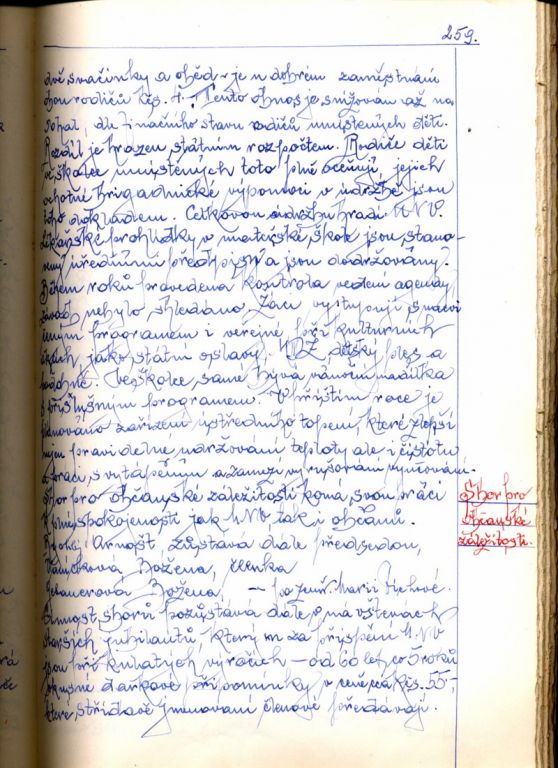 259.
dvě svačinky a oběd - je u dobrém zaměstnání
obou rodičů Kčs. 7.- Tento obnos je snižován až na
dle finančního stavu rodičů umístěných dětí.
Rozdíl je hrazen státním rozpočtem. Rodiče dětí
ve školce umístěných toto plně oceňují, jejich
ochotné brigádnické výpomoci v údržbě jsou
toho dokladem. Celkovou údržbu hradí MNV.
Lékařské prohlídky v mateřské škole jsou stano-
veny úředními předpisy a jsou dodržovány.
Během roků provedena kontrola vedení agendy
závad nebylo shledáno. Žáci vystupují s nacvi
čeným programem i veřejně při kulturních
akcích, jako státní oslavy, MDŽ dětský ples a
podobně. Ve školce same bývá vánoční nadílka
s příslušným programem. V příštím roce je
plánováno zařízení ústředního topení, které zlepší
nejen pravidelné udržování teploty ale i čistotu
a práci s vytápěním a zamezí vyrušování vyučování.
Sbor pro Občanské záležitosti koná svou práci
k plné spokojenosti jak MNV tak i občanů.
Arnošt, zůstává dále předsedou,
Božena, členka
Božena, — po zemř. Marii
Činnost sboru pozůstává dále v návštěvách
starších jubilantů, kterým za přispění MNV
jsou při kulatých výročích - od 60 let co 5 roků
vkusné dárkové připomínky v ceně cca Kčs. 55,-
které střídavě jmenovaní členové předávají.
Sbor pro
Občanské
záležitosti.